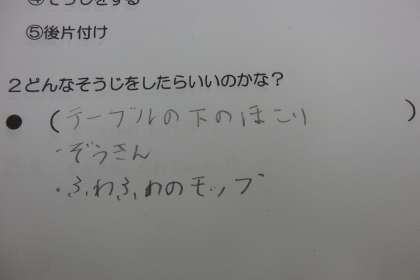 ④そうじをする
⑤後片付け
2どんなそうじをしたらいいのかな？
● (テーブルの下のほこり)
・ぞうきん
・ふわふわのモップ